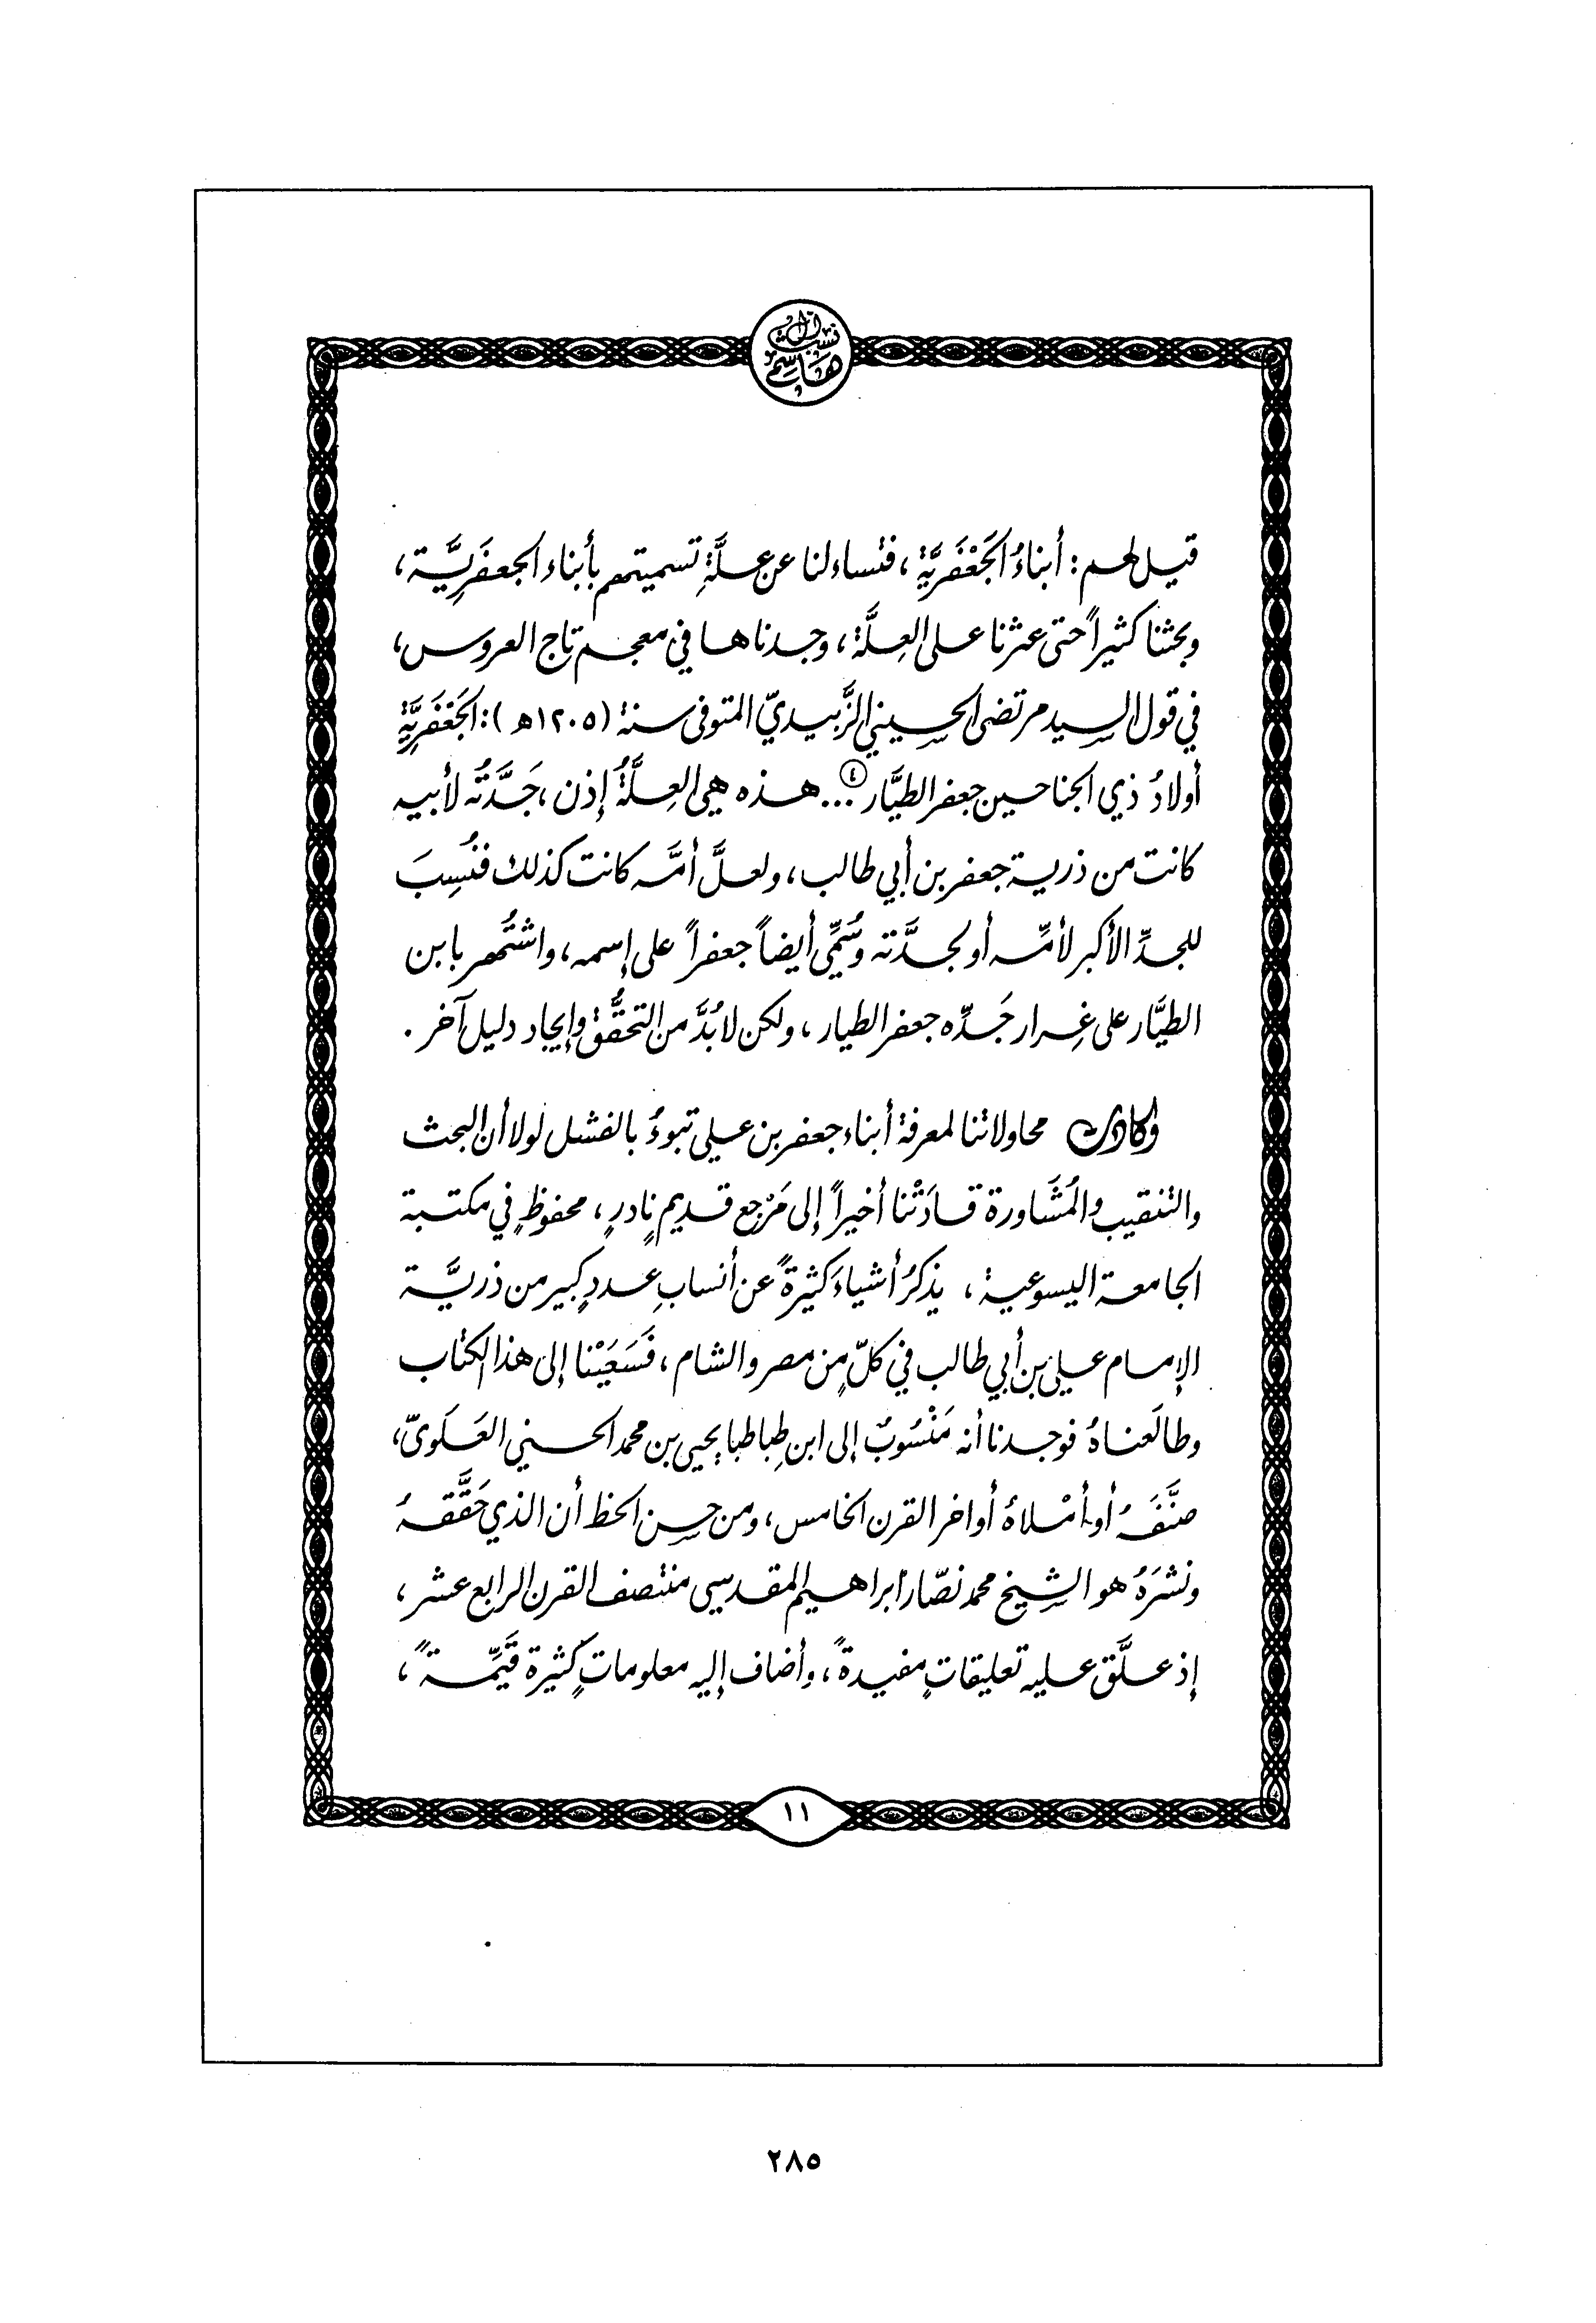 نسب آل
هاشم
قيل لهم : أبناءُ الجَعْفَرِيَّةِ ، فتساءلنا عن علَّةِ تسميتهم بأبناء الجعفَرِيَّة ،
وبحثنا كثيراً حتى عثرنا على العِلَّة ، وجدناها في معجم تاج العروس ،
في قول السيد مرتضى الحسيني الزَّبيديّ المتوفى سنة (١٢٠٥ه ) : الجَعْفَرِيَّةِ
أولادُ ذي الجناحين جعفر الطيَّار (٤) ... هذه هي العِلَّةُ إذن ، جَدَّتُه لأبيه
كانت من ذرية جعفر بن أبي طالب ، ولعلَّ أمَّه كانت كذلك فنُسِبَ
للجدِّ الأكبر لأمِّه أو لجدَّته وسُمِّيَ أيضاً جعفراً على إسمه ، واشتُهر بابن
الطيَّار على غِرار جَدِّه جعفر الطيار ، ولكن لابُدَّ من التحقُّق وإيجاد دليل آخر .
وكادت محاولاتنا لمعرفة أبناء جعفر بن علي تبوءُ بالفشل لولا أن البحث
والتنقيب والمُشَاورة قادَتْنا أخيراً إلى مَرْجع قديم نادرٍ ، محفوظٍ في مكتبة
الجامعة اليسوعية ، يذكرُ أشياءَ كثيرةً عن أنسابِ عددٍ كبير من ذريَّة
الإمام علي بن أبي طالب في كلّ من مصر والشام ، فَسَعَيْنا إلى هذا الكتاب
وطالَعناهُ فوجدنا أنه مَنْسُوبٌ إلى ابن طِباطبا يحيى بن محمد الحسني العَلَويّ ،
صنَّفَهُ أو أمْلاهُ أواخر القرن الخامس ، ومن حسن الحظ أن الذي حَقَّقهُ
ونشرَهُ هو الشيخ محمد نصّار ابراهيم المقدسي منتصف القرن الرابع عشر ،
إذ علَّق عليه تعليقاتٍ مفيدةً ، وأضاف إليه معلوماتٍ كثيرة قَيِّمةً ،
١١
٢٨٥